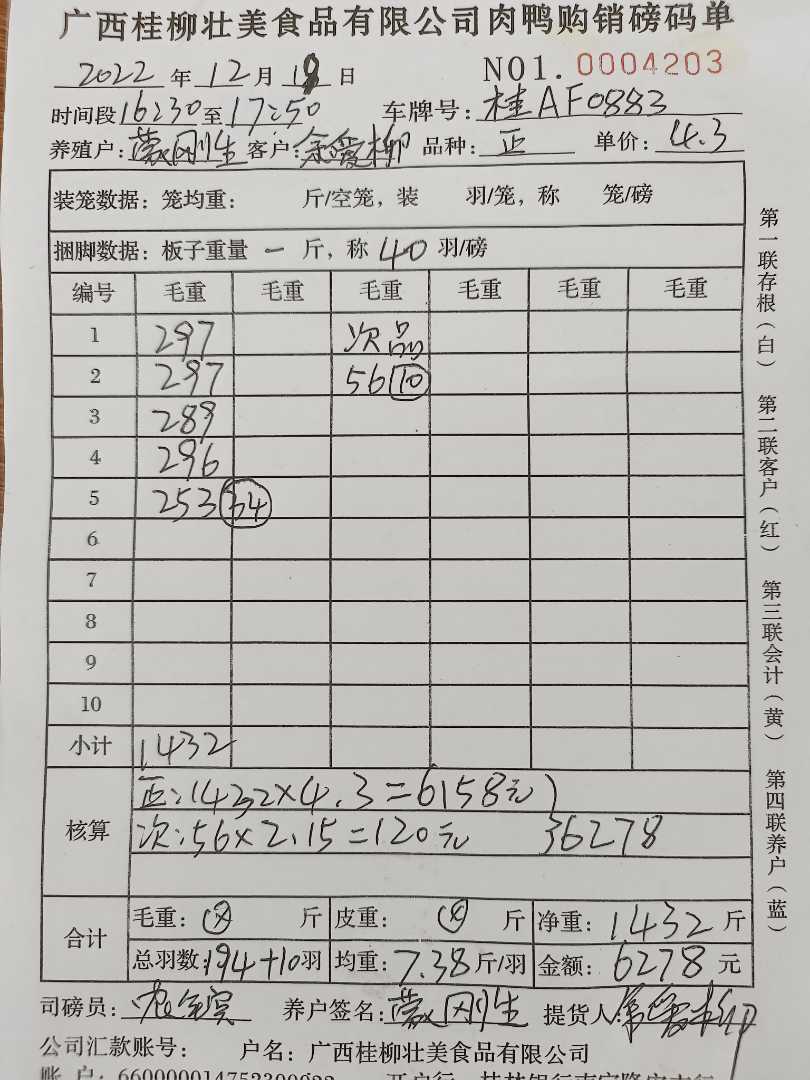 广西桂柳壮美食品有限公司肉鸭购销磅码单
2022年12月18日 NO1.0004203
时间段16:30至17:50 车牌号:桂AF0883
养殖户:蒙刚生 客户: 品种:正 单价:4.3
装笼数据:笼均重: 斤/空笼,装 羽/笼,称 笼/磅
捆脚数据:板子重量 一 斤,称 40 羽/磅
编号 毛重 毛重 毛重 毛重 毛重 毛重
1 297 次品
2 297 56 10
3 289
4 296
5 253 34
6
7
8
9
10
小计 1432
核算 正:1432×4.3=6158元
次:56×2.15=120元 36278
合计 毛重: 斤 皮重: 斤 净重:1432斤
总羽数:194+10羽 均重:7.38斤/羽 金额:6278元
司磅员: 养户签名:蒙刚生 提货人:
公司汇款账号: 户名:广西桂柳壮美食品有限公司
账户:660000014753300022 开户行:桂林银行南宁隆安支行
第一联存根(白) 第二联客户(红) 第三联会计(黄) 第四联养户(蓝)